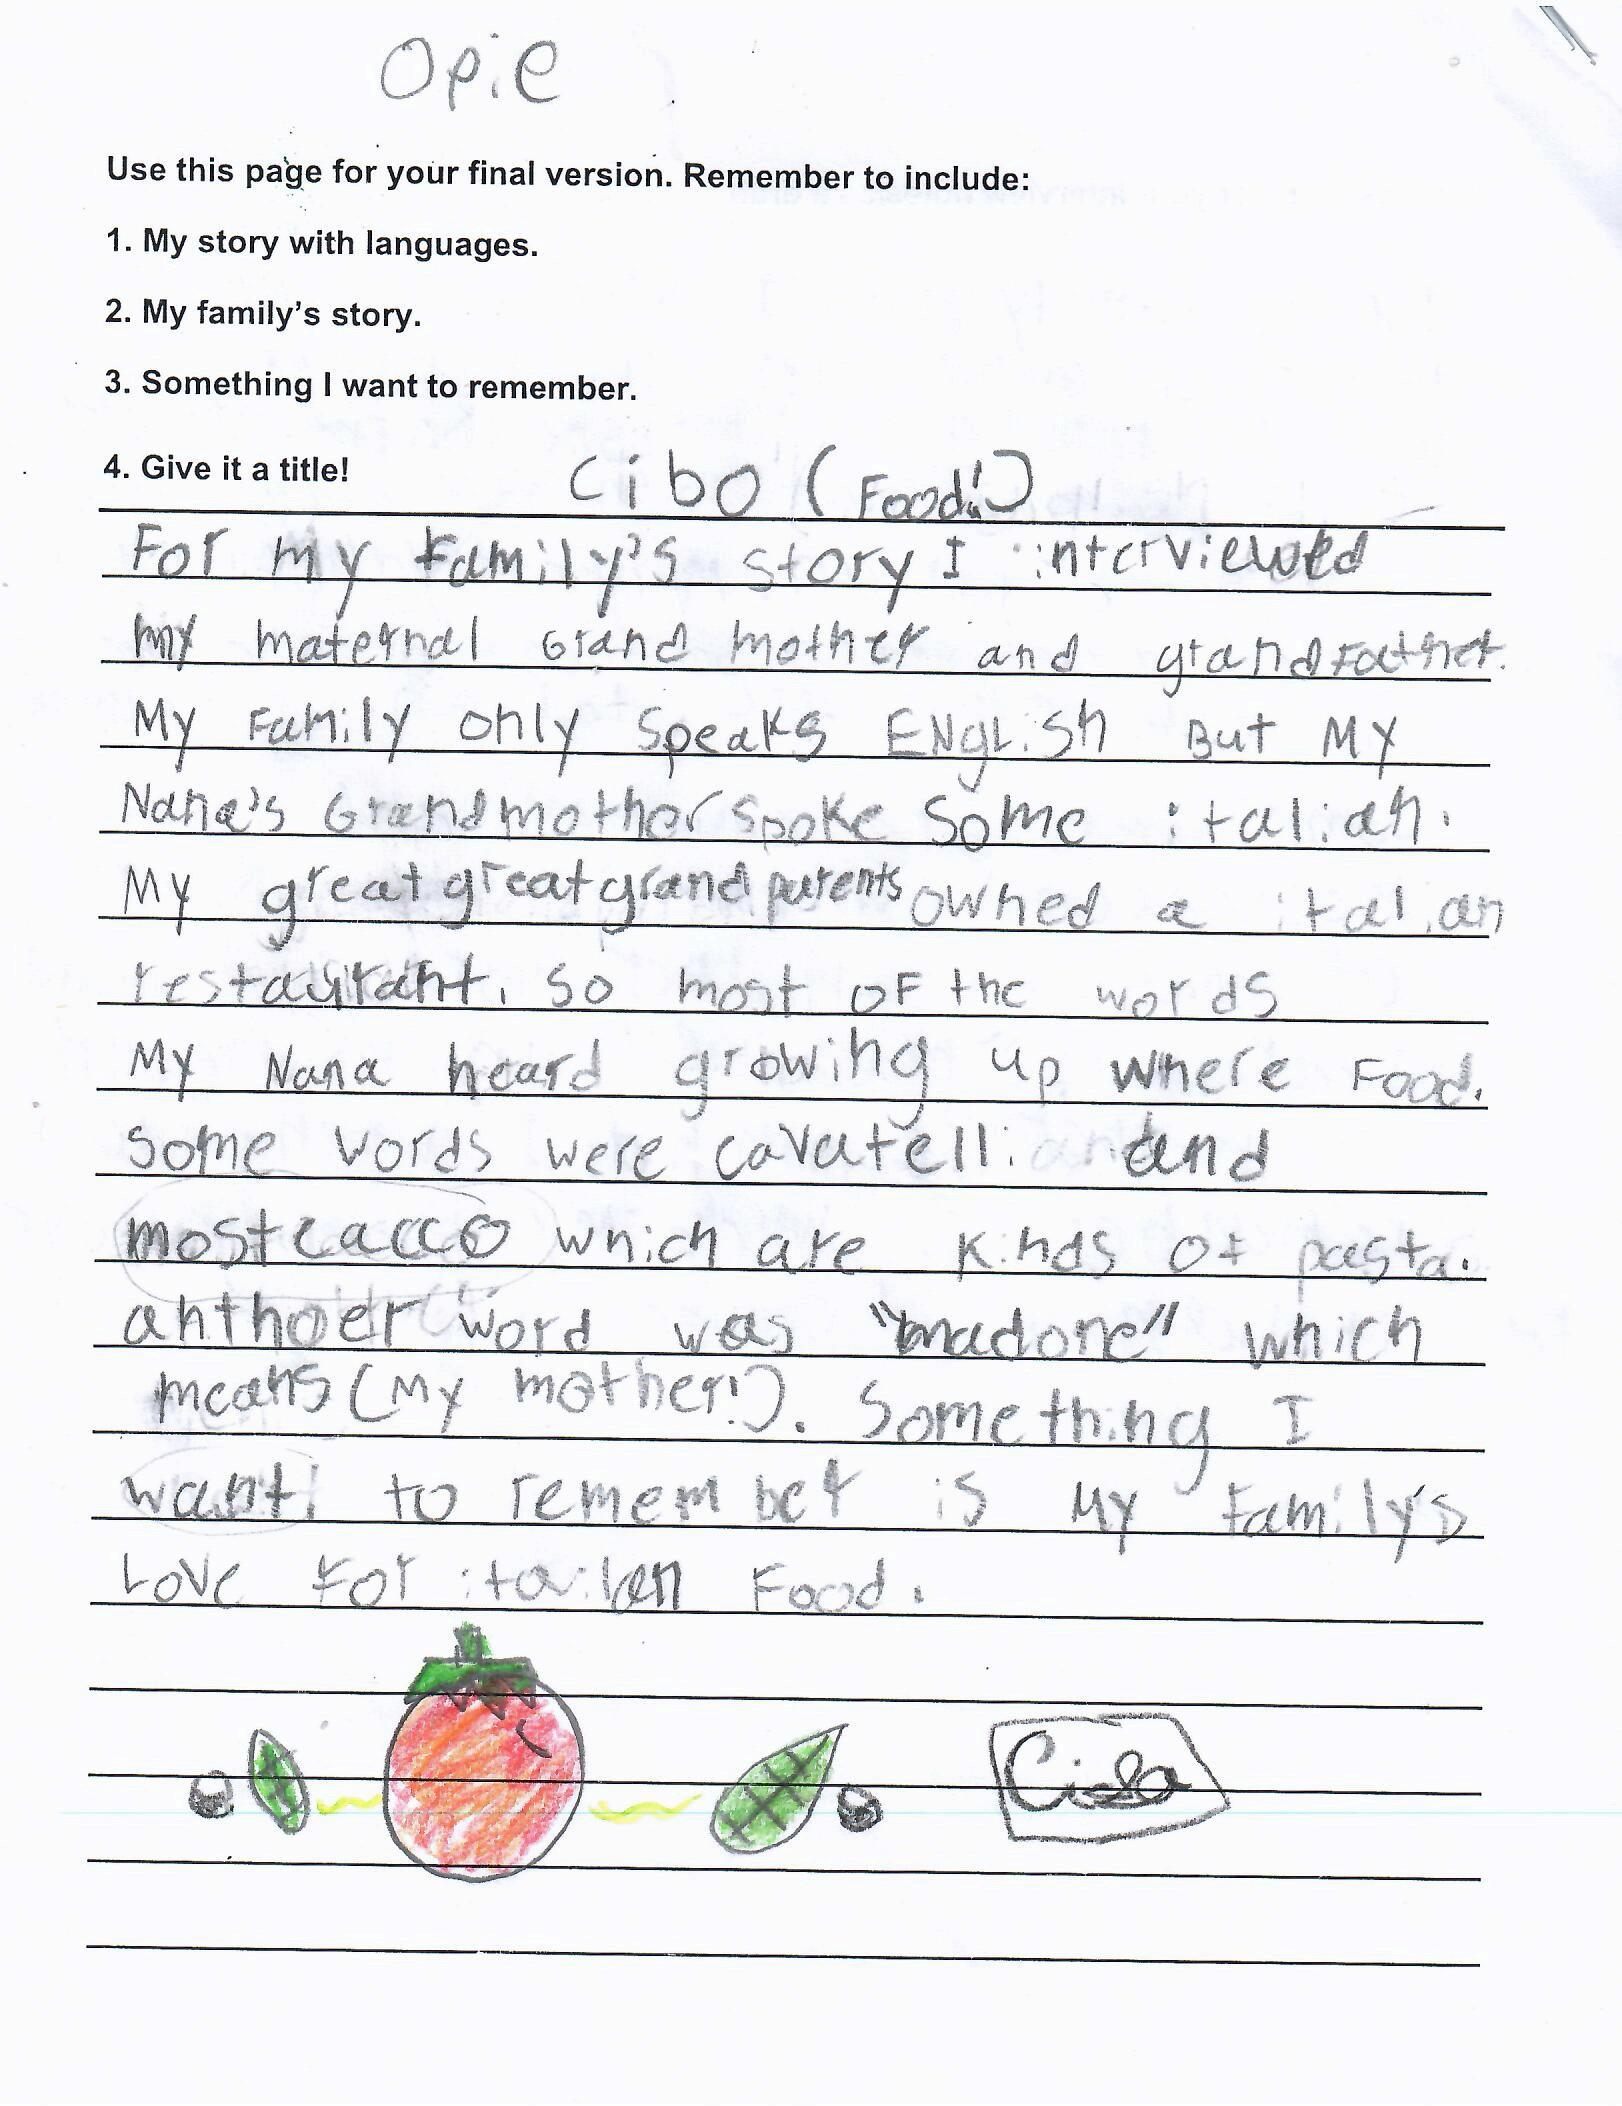 Opie
Use this page for your final version. Remember to include:
1. My story with languages.
2. My family's story.
3. Something I want to remember.
4. Give it a title!
Cibo (Food!)
For my family's story I interviewed
my maternal Grand mother and grandfather.
My Family only speaks ENgLish But My
Nana's Grandmother spoke some italian.
My great great grand parents owned a italian
restaurant. so most of the words
My Nana heard growing up where Food.
some words were cavatelli and
mostcacco which are kinds of pasta.
anthoer word was "madone" which
means (My mother!). Something I
want to remember is My family's
Love For itailen Food.